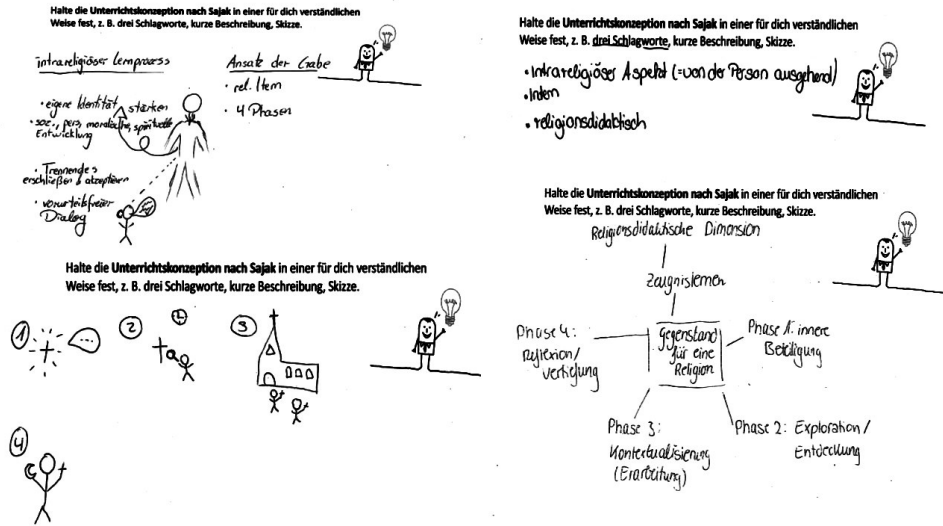 Halte die Unterrichtskonzeption nach Sajak in einer für dich verständlichen
Weise fest, z. B. drei Schlagworte, kurze Beschreibung, Skizze.
intrareligiöser Lernprozess
• eigene Identität stärken
• soz., pers., moralische, spirituelle
Entwicklung
• Trennendes
erschließen & akzeptieren
• vorurteilsfreier
Dialog
Ansatz der Gabe
• rel. Item
• 4 Phasen
Halte die Unterrichtskonzeption nach Sajak in einer für dich verständlichen
Weise fest, z. B. drei Schlagworte, kurze Beschreibung, Skizze.
• Intrareligiöser Aspekt (= von der Person ausgehend)
• religionsdidaktisch
Halte die Unterrichtskonzeption nach Sajak in einer für dich verständlichen
Weise fest, z. B. drei Schlagworte, kurze Beschreibung, Skizze.
1
2
3
4
Halte die Unterrichtskonzeption nach Sajak in einer für dich verständlichen
Weise fest, z. B. drei Schlagworte, kurze Beschreibung, Skizze.
Religionsdidaktische Dimension
Zeugnislernen
Gegenstand
für eine
Religion
Phase 1: innere
Beteiligung
Phase 2: Exploration/
Entdeckung
Phase 3:
Kontextualisierung
(Erarbeitung)
Phase 4:
Reflexion/
Vertiefung